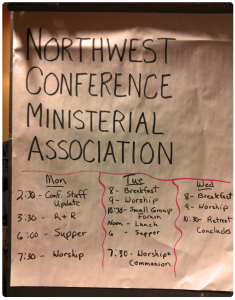 NORTHWEST
CONFERENCE
MINISTERIAL
ASSOCIATION
Mon
2:30 - Conf. Staff
Update
3:30 - R + R
6:00 - Supper
7:30 - Worship
Tue
8 - Breakfast
9 - Worship
10:30 - Small Group
Forum
Noon - Lunch
6 - Supper
7:30 - Worship +
Communion
Wed
8 - Breakfast
9 - Worship
10:30 - Retreat
Concludes